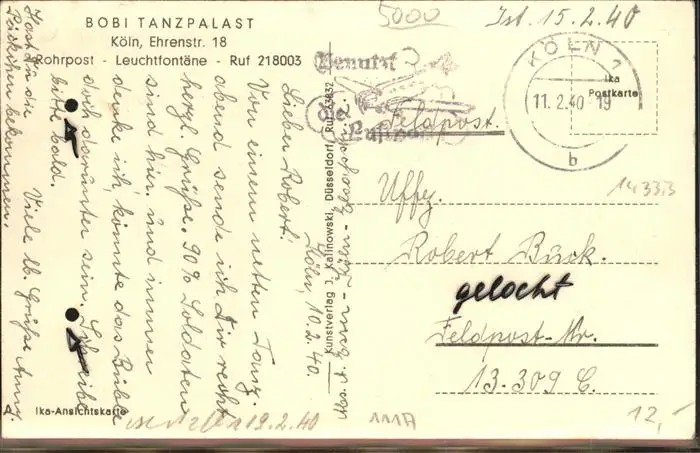 BOBI TANZPALAST
Köln, Ehrenstr. 18
Rohrpost - Leuchtfontäne - Ruf 218003
5000
Ist. 15.2.40
Benutzt
die
Luftpost
KÖLN 1
11.2.40-19
b
Ika
Postkarte
Feldpost.
14333
Uffz.
Robert Bück.
gelocht
Feldpost-Nr.
13.309 C.
12,-
111A
Kunstverlag J. Kalinowski, Düsseldorf, Ruf 63832
Abs. A. Esser - Köln -
Köln, 10.2.40.
Lieber Robert!
Von einem netten Tanz-
abend sende ich Dir recht
herzl. Grüße. 90% Soldaten
sind hier. und immer
denke ich, könnte das Bübe
doch darunter sein. Schreibe
bitte bald.
Viele lb. Grüße Anny
Hast du die
Päckchen bekommen.
A.
Ika-Ansichtskarte
19.2.40